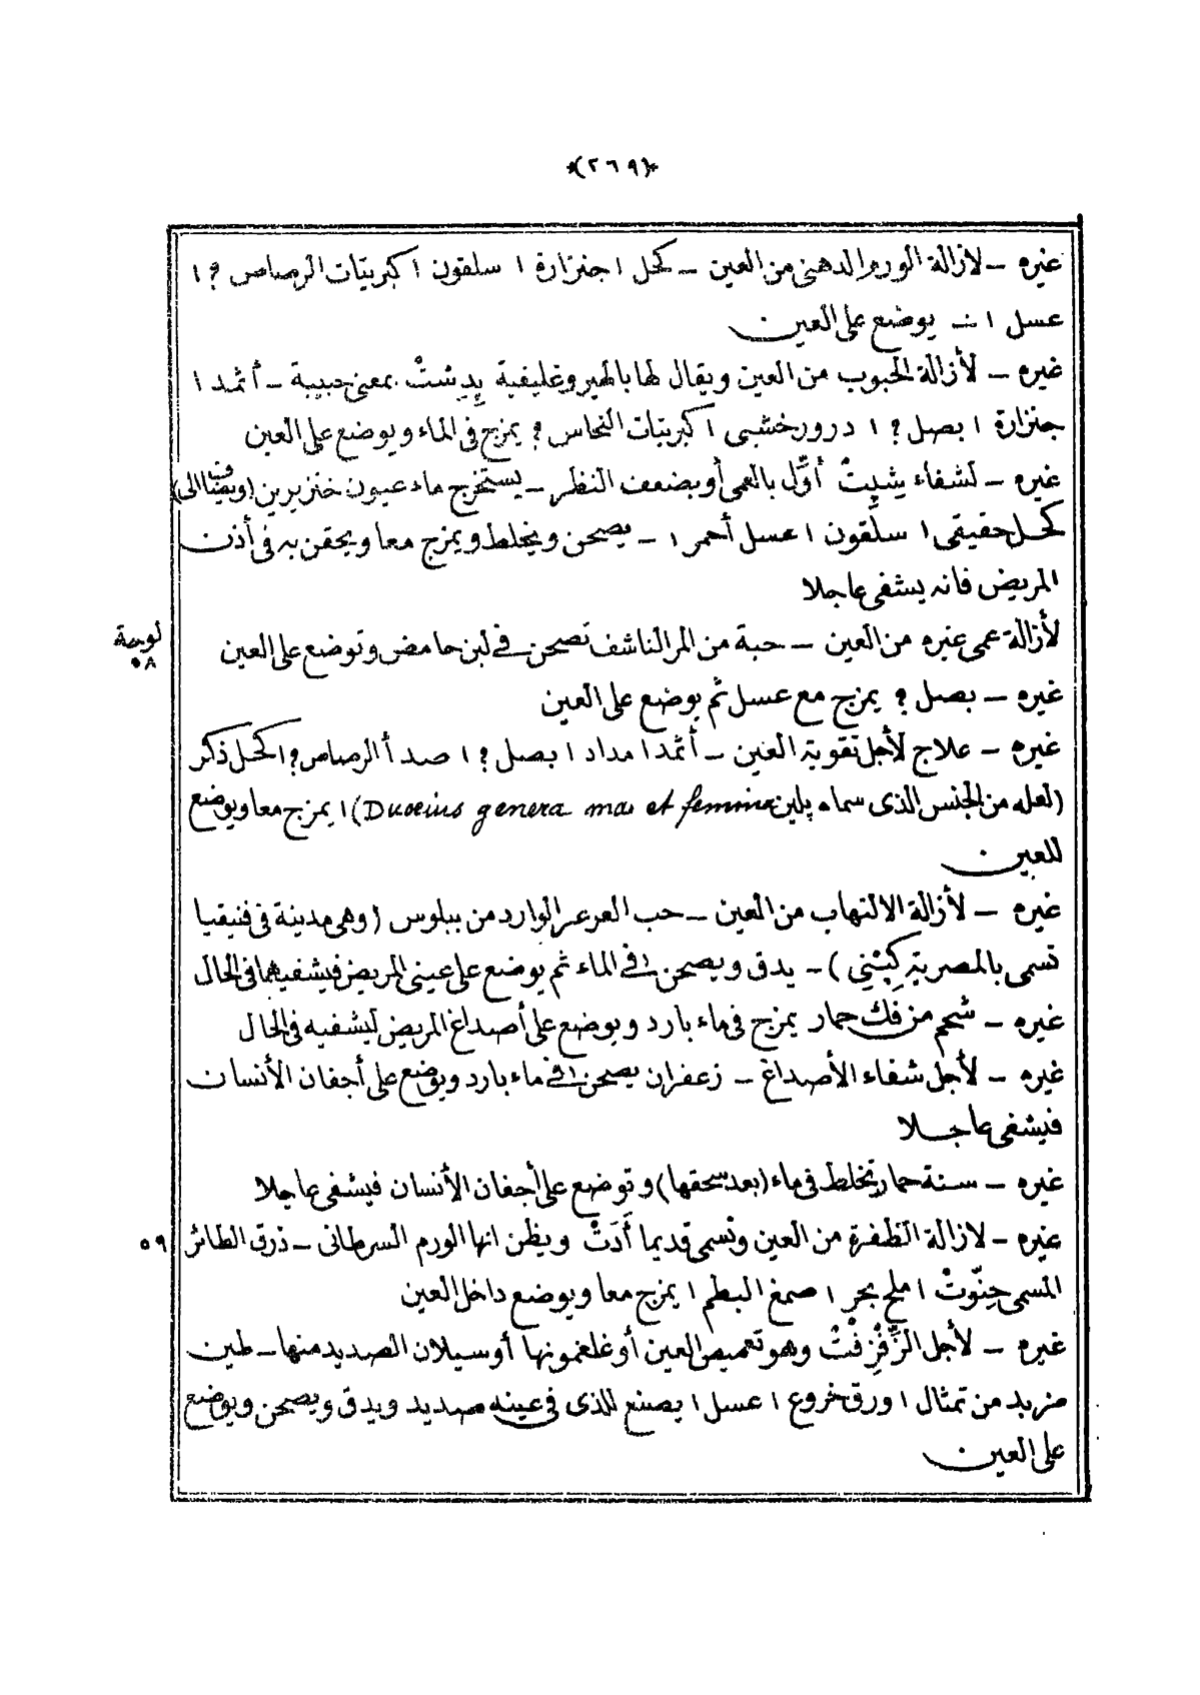 *(٢٦٩)*
غيره – لازالة الورم الدهنى من العين – كحل ١ جنزارة ١ سلقون ١ كبريتات الرصاص ؟ ١
عسل ١ – يوضع على العين
غيره – لأزالة الحبوب من العين ويقال لها بالهيروغليفية پِدِشتْ بمعنى حبيبة – أثمد ١
جنزارة ١ بصل ؟ ١ درور خشبى ١ كبريتات النحاس ؟ يمزج فى الماء ويوضع على العين
غيره – لشفاء شپتْ أوّل بالعمى أو بضعف النظر – يستخرج ماء عيون خنزيرين (ويضاف الى)
كحل حقيقى ١ سلقون ١ عسل أحمر ١ – يصحن ويخلط ويمزج معا ويحقن به فى أذن
المريض فانه يشفى عاجلا
لأزالة عمى غيره من العين – حبة من المر الناشف تصحن فى لبن حامض وتوضع على العين
لوحة
٥٨
غيره – بصل ؟ يمزج مع عسل ثم يوضع على العين
غيره – علاج لأجل تقوية العين – أثمد ١ مداد ١ بصل ؟ ١ صدأ الرصاص ؟ ١ كحل ذكر
(لعله من الجنس الذى سماه پلين Duoeius genera mas et femina) ١ يمزج معا ويوضع
للعين
غيره – لأزالة الالتهاب من العين – حب العرعر الوارد من ببلوس (وهى مدينة فى فنيقيا
تسمى بالمصرية كِبْنِي) – يدق ويصحن ١ فى الماء ثم يوضع على عينى المريض فيشفيهما فى الحال
غيره – شحم من فك حمار يمزج فى ماء بارد ويوضع على أصداغ المريض ليشفيه فى الحال
غيره – لأجل شفاء الأصداغ – زعفران يصحن ١ فى ماء بارد ويوضع على أجفان الأنسان
فيشفى عاجلا
غيره – سنة حمار تخلط فى ماء (بعد سحقها) وتوضع على أجفان الأنسان فيشفى عاجلا
غيره – لازالة الظفرة من العين وتسمى قديما أَدَتْ ويظن انها الورم السرطانى – ذرق الطائر
٥٩
المسمى حِنّوتْ ١ ملح بحر ١ صمغ البطم ١ يمزج معا ويوضع داخل العين
غيره – لأجل الزّفْزِفْتْ وهو تعميص العين أو غلغمونها أو سيلان الصديد منها – طين
منربد من تمثال ١ ورق خروع ١ عسل ١ يصنع للذى فى عينه صديد ويدق ويصحن ويوضع
على العين